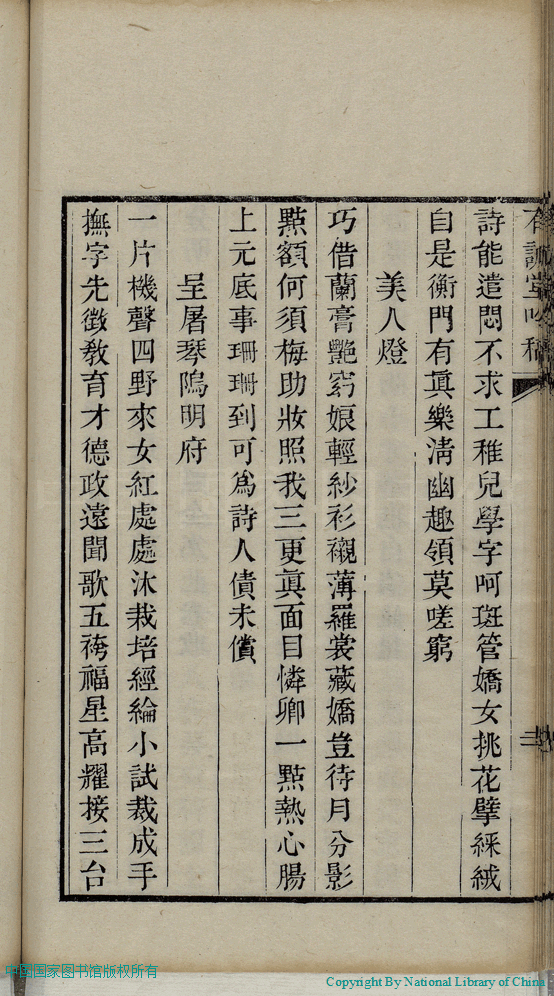 詩能遣悶不求工稚兒學字呵斑管嬌女挑花擘綵絨
自是衡門有眞樂淸幽趣領莫嗟窮
美人燈
巧借蘭膏艷窈娘輕紗衫襯薄羅裳藏嬌豈待月分影
點額何須梅助妝照我三更眞面目憐卿一點熱心腸
上元底事珊珊到可爲詩人債未償
呈屠琴隝明府
一片機聲四野來女紅處處沐栽培經綸小試裁成手
撫字先徵敎育才德政遠聞歌五袴福星高耀接三台
中国国家图书馆版权所有
Copyright By National Library of China